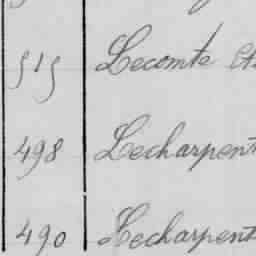 515 Lecomte
498 Lecharpent
490 Lecharpent